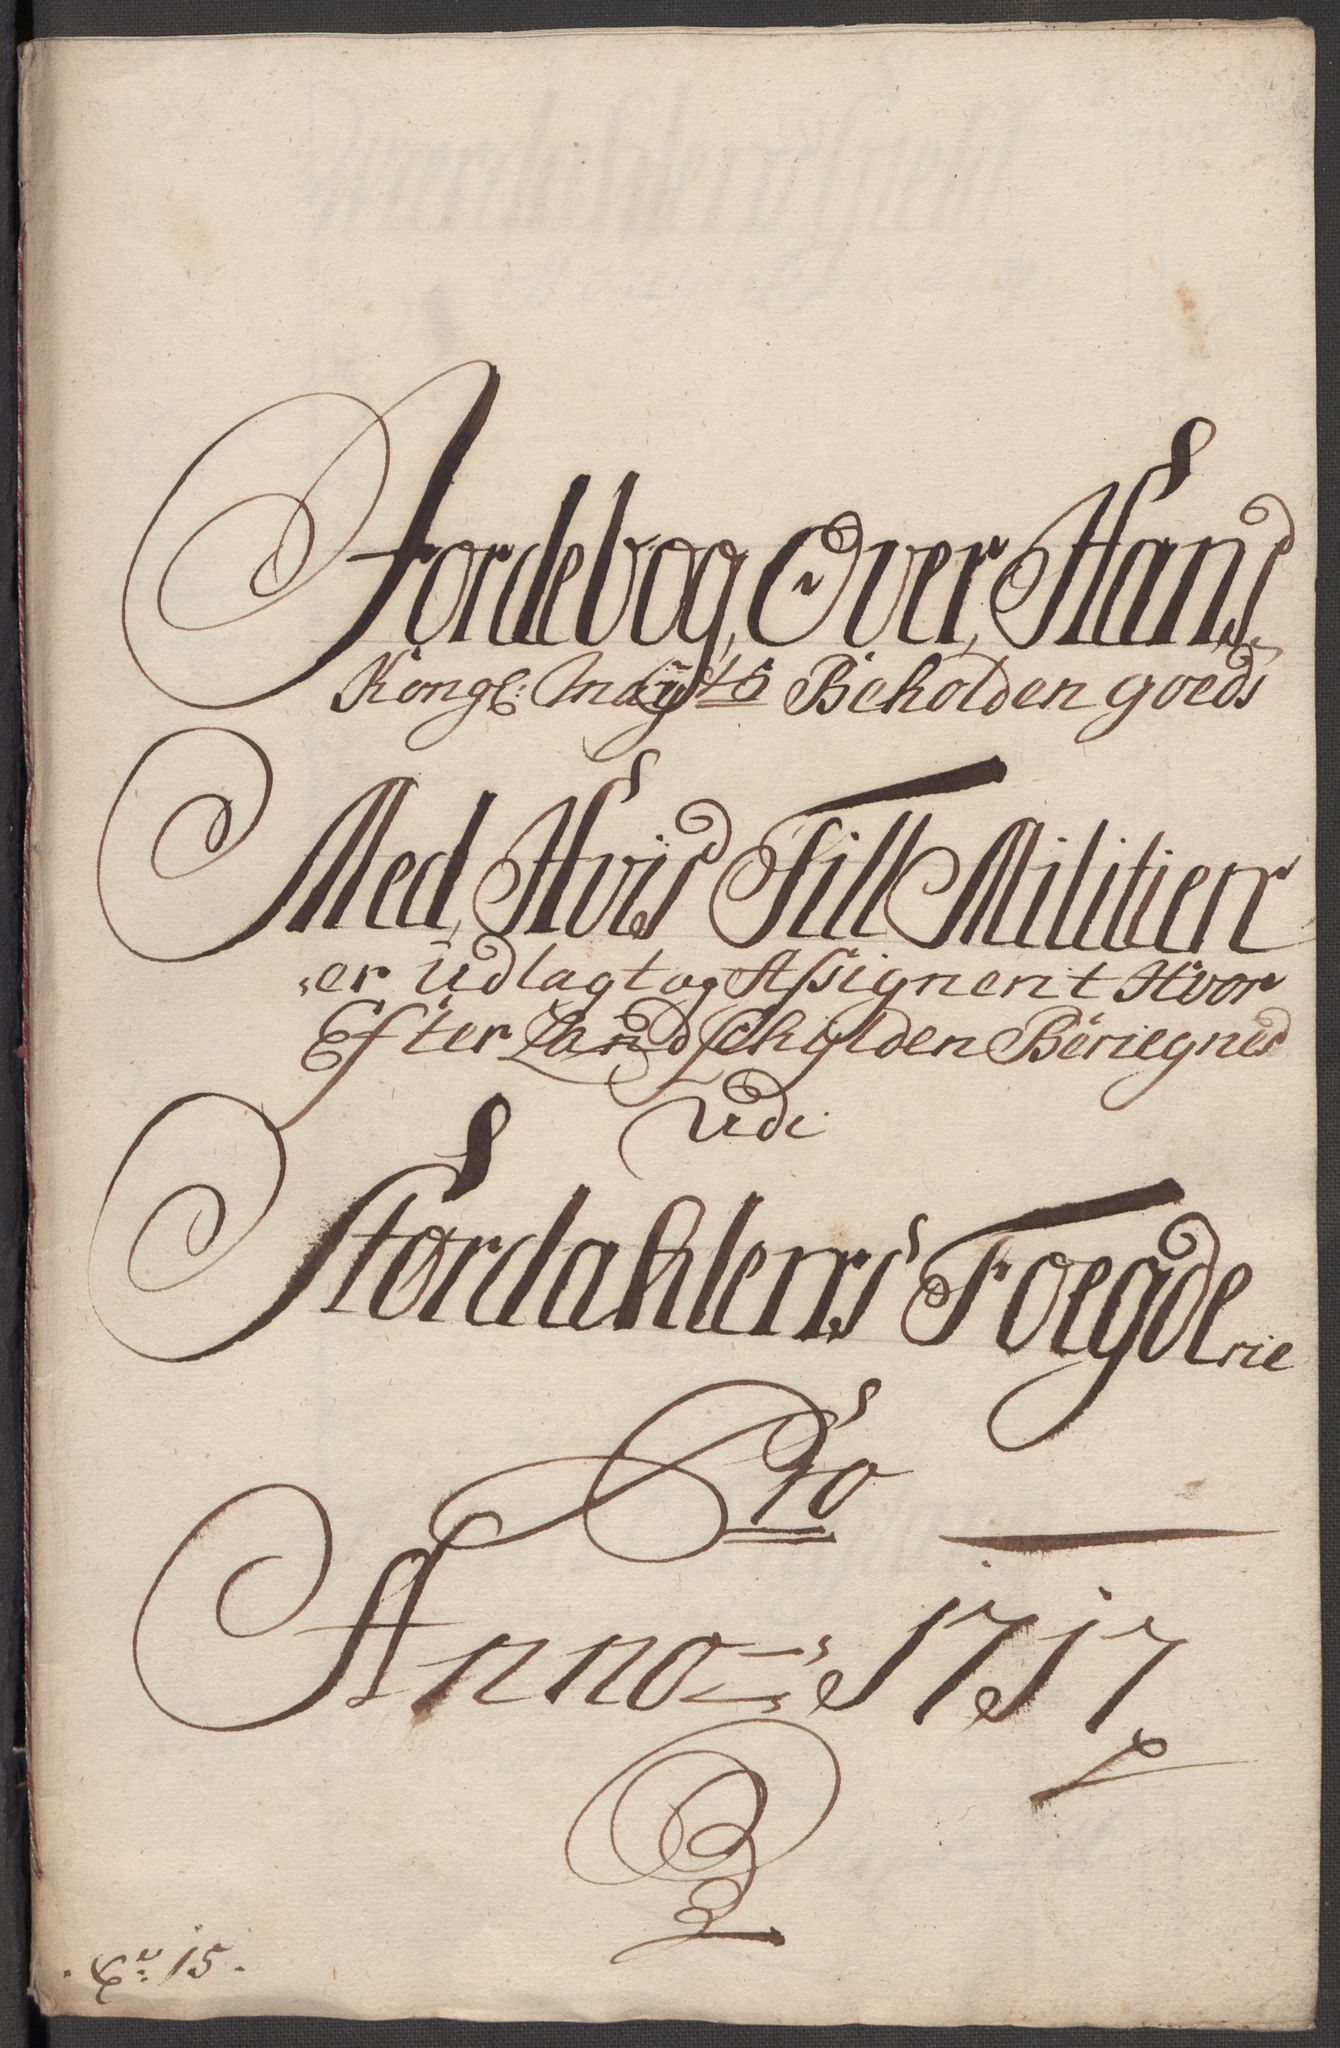 Jordebog, Over, Hans
Kongl: Mayts Beholden goeds
Med, Hvis Till Militien
er Udlagt og Assignent Hvor
Efter Landschylden Beriegnes
Udi
Størdahlens Foegde
rie
Pro
Anno 1717
15.